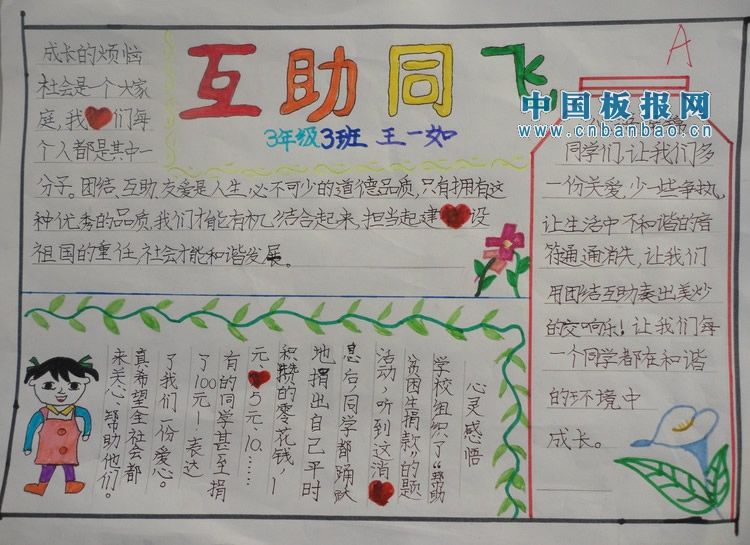 互助同飞
3年级3班 王一如
A
中国板报网
www.cnbanbao.cn
成长的烦恼
社会是一个大家
庭,我们每
个人都是其中一
分子。团结、互助、友爱是人生必不可少的道德品质,只有拥有这
种优秀的品质,我们才能有机结合起来,担当起建设
祖国的重任,社会才能和谐发展。
同学们,让我们多
一份关爱,少一些争执,
让生活中不和谐的音
符通通消失,让我们
用团结互助奏出美妙
的交响乐!让我们每
一个同学都在和谐
的环境中
成长。
心灵感悟
学校组织了“帮助
贫困生捐款”的题
活动,听到这消
息后,同学都踊跃
地捐出自己平时
积攒的零花钱,一
元5元、10、……
有的同学甚至捐
了100元!表达
了我们一份爱心。
真希望全社会都
来关心、帮助他们。